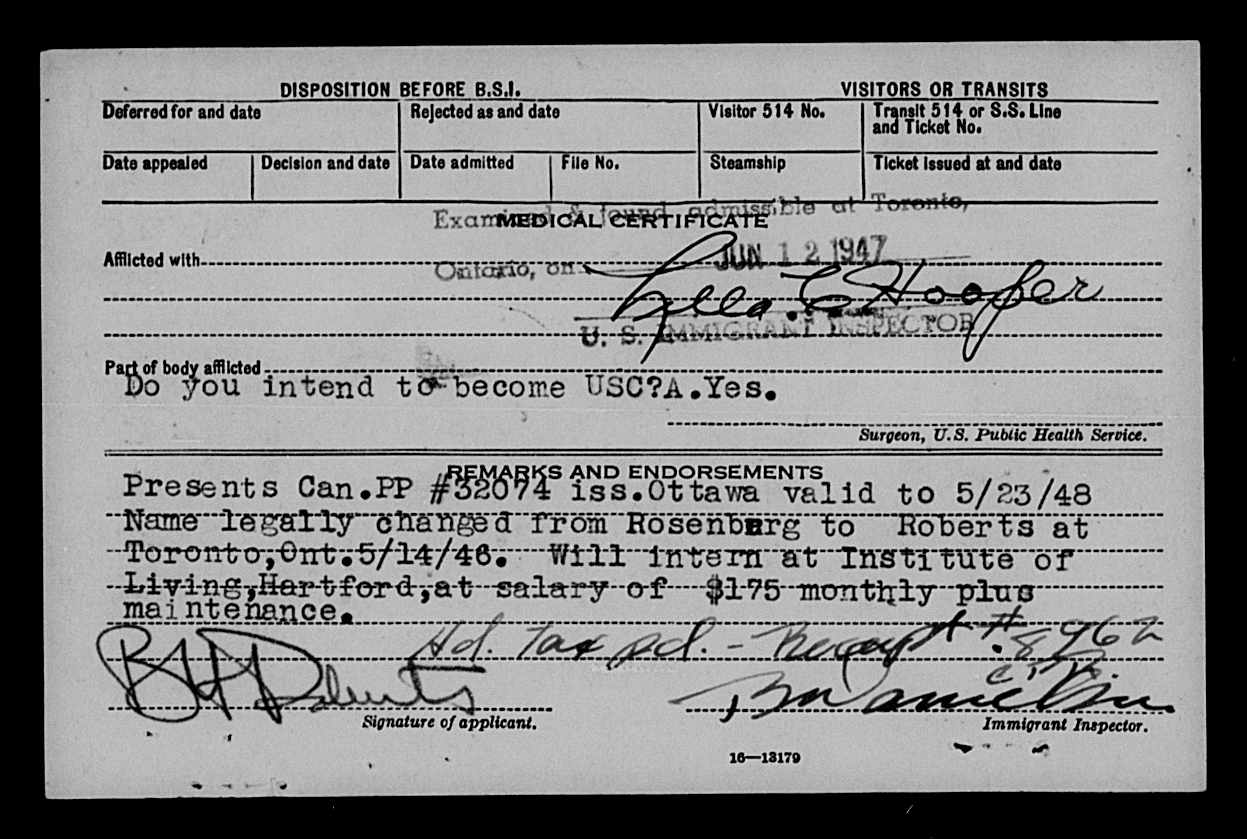 DISPOSITION BEFORE B.S.I. VISITORS OR TRANSITS
Deferred for and date Rejected as and date Visitor 514 No. Transit 514 or S.S. Line
and Ticket No.
Date appealed Decision and date Date admitted File No. Steamship Ticket issued at and date
Examined & found admissible at Toronto,
MEDICAL CERTIFICATE
Afflicted with
Ontario, on JUN 12 1947
C Hoofer
U. S. IMMIGRANT INSPECTOR
Part of body afflicted
Do you intend to become USC?A.Yes.
Surgeon, U.S. Public Health Service.
REMARKS AND ENDORSEMENTS
Presents Can.PP #32074 iss.Ottawa valid to 5/23/48
Name legally changed from Rosenberg to Roberts at
Toronto,Ont.5/14/46. Will intern at Institute of
Living,Hartford,at salary of $175 monthly plus
maintenance.
Hd. tax pd. - Receipt # 8962
Roberts
Signature of applicant.
Immigrant Inspector.
16—13179